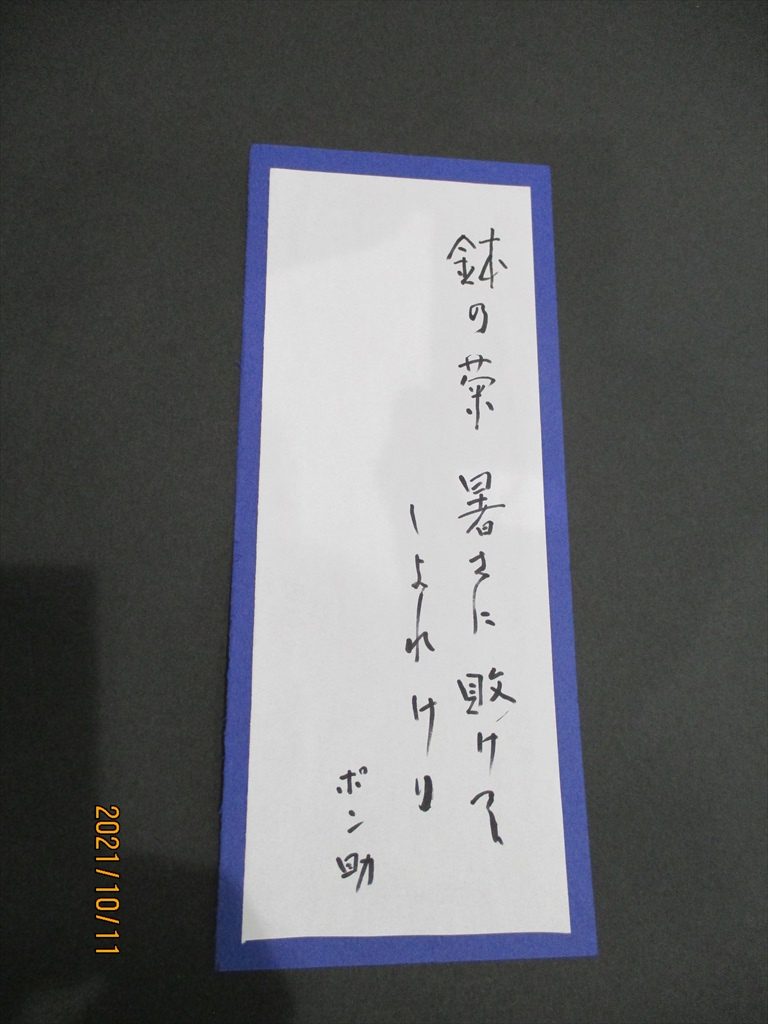 鉢の菊 暑さに敗けて
しよれけり
ポン助
2021/10/11